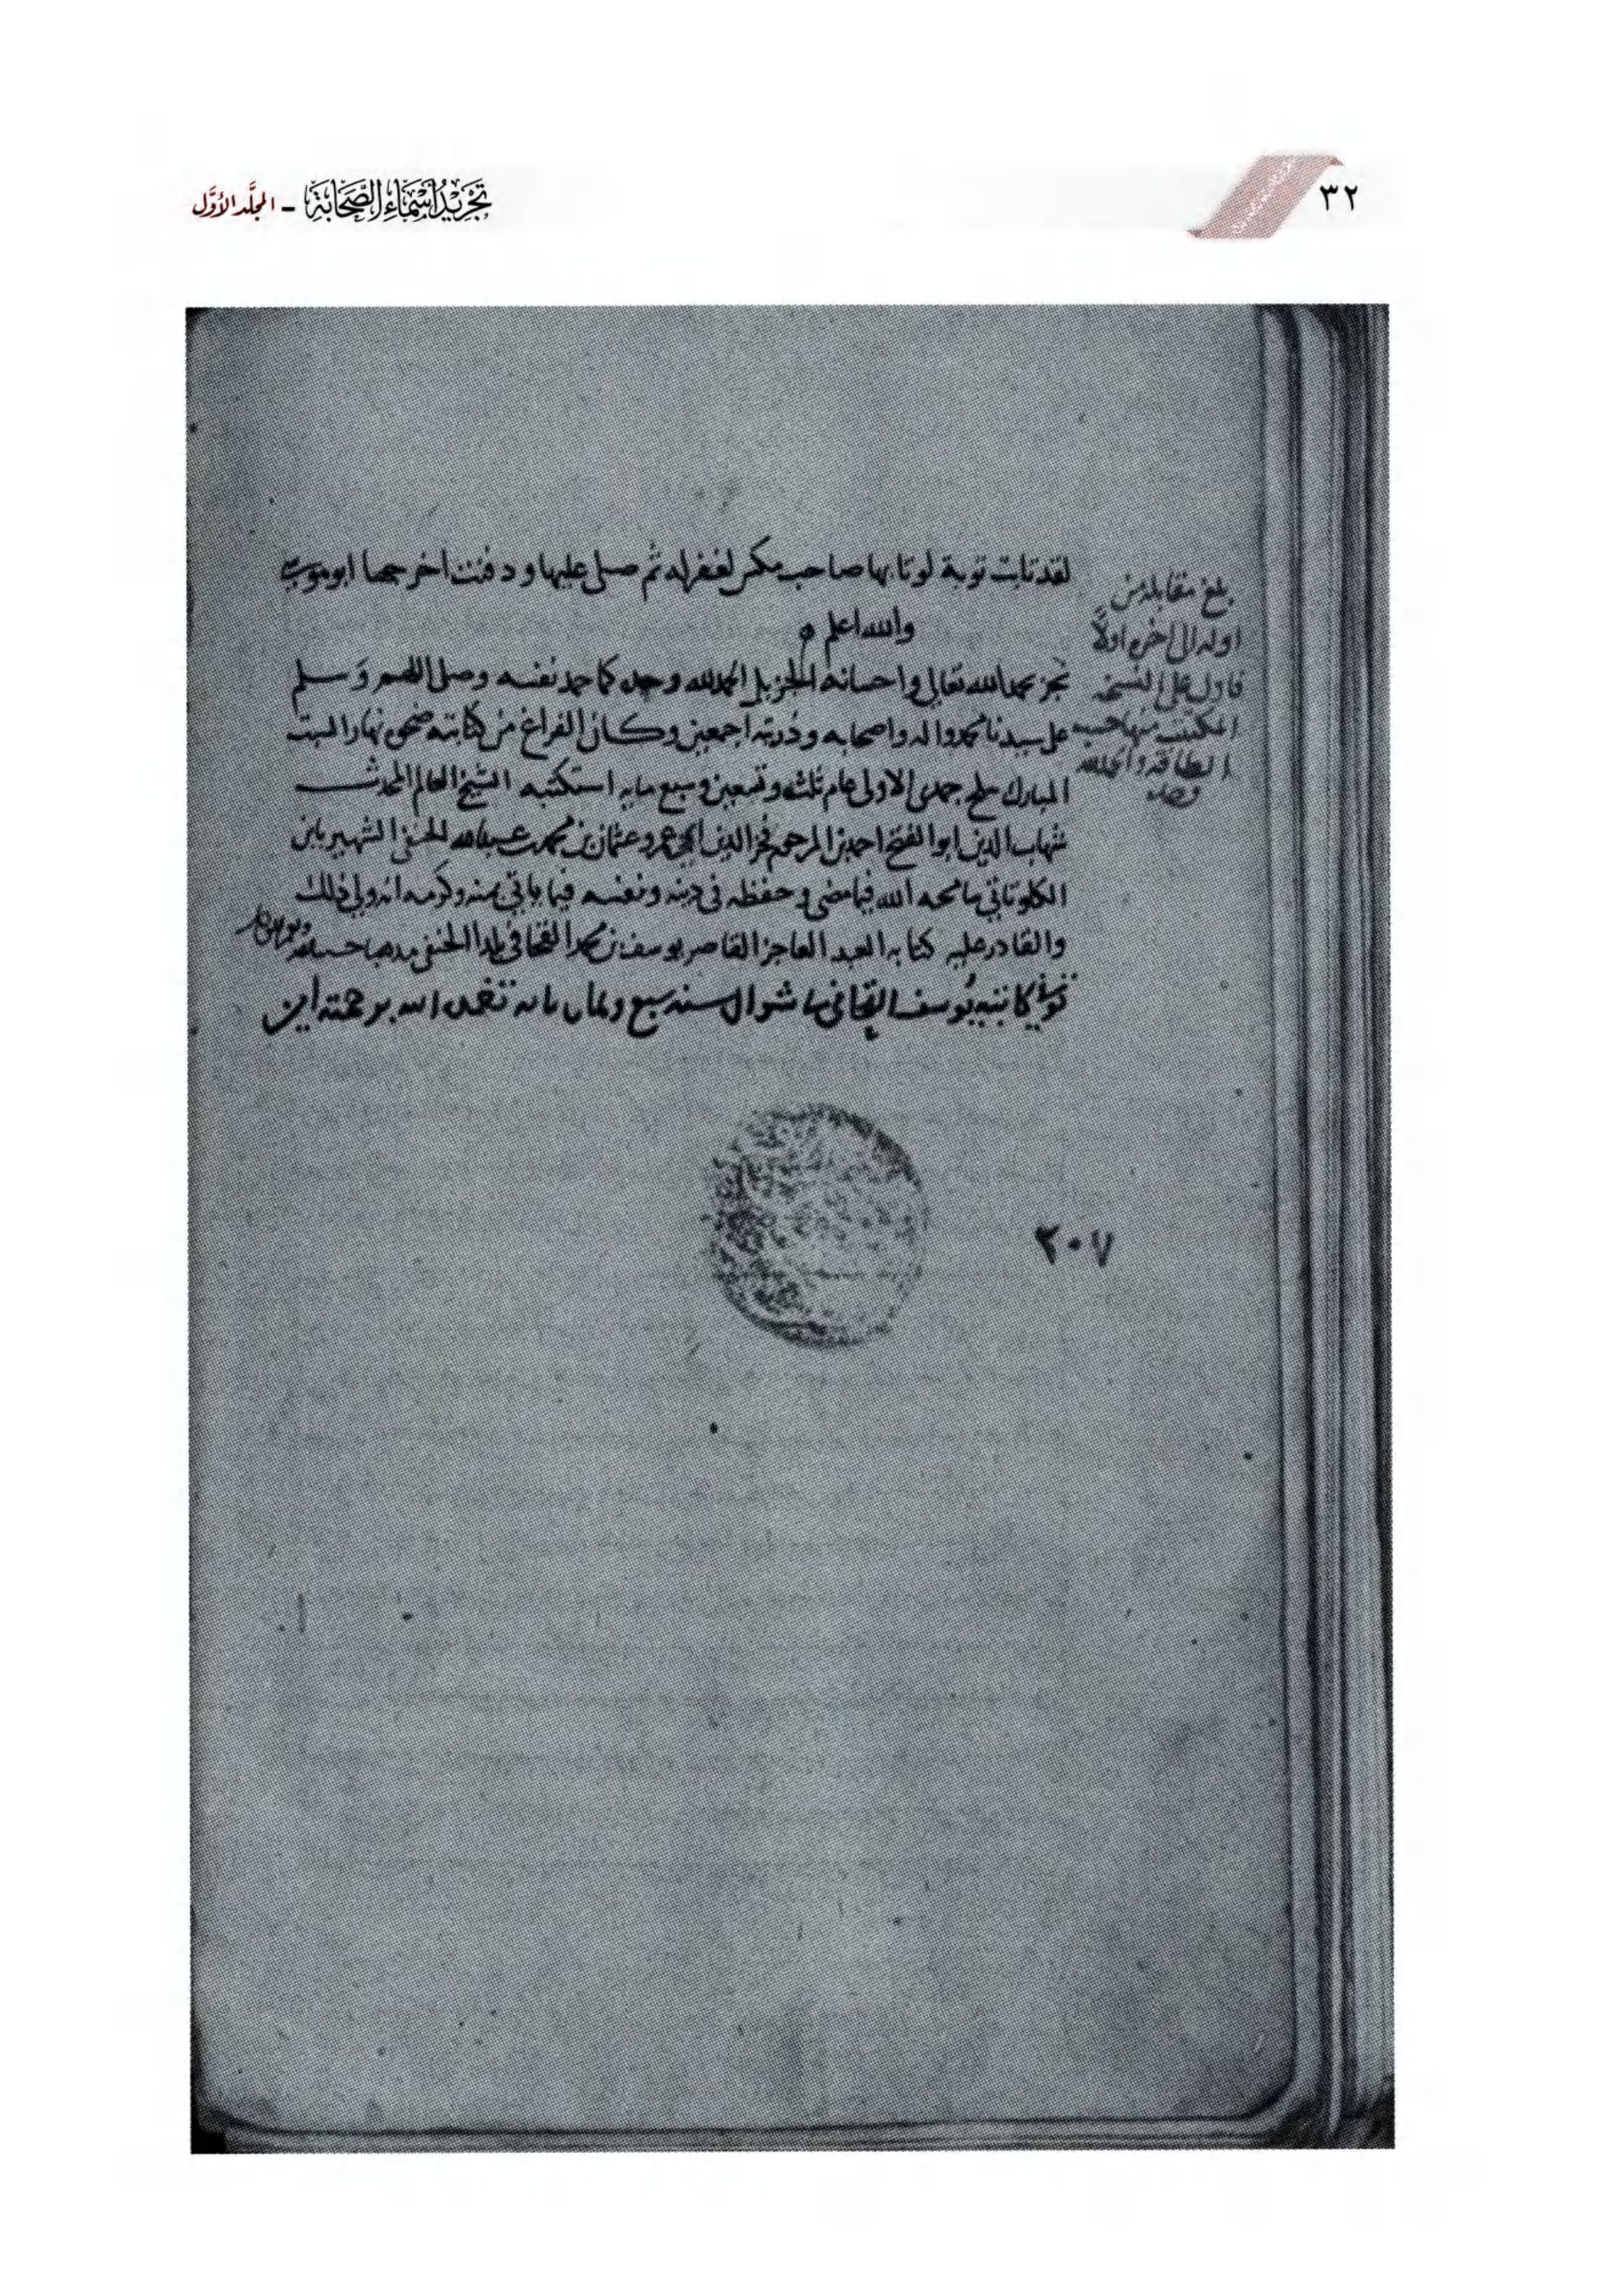 ٣٢
تجريد أسماء الصحابة - المجلد الأول
لقد تابت توبة لو تابها صاحب مكس لغفر له ثم صلى عليها ودفنت اخرجها ابو موسى
والله اعلم ه
نجز بحمد الله تعالى واحسانه الجزيل الحمد لله وحده كما حمد نفسه وصلى اللهم وسلم
على سيدنا محمد واله واصحابه وذريته اجمعين وكان الفراغ من كتابته ضحى نهار السبت
المبارك سلخ جمدى الاولى عام ثلث وتسعين وسبع مايه استكتبه الشيخ العالم المحدث
شهاب الدين ابو الفتح احمد بن المرحوم فخر الدين ابي عمرو عثمان بن محمد بن عبد الله الحنفي الشهير بابن
الكلوتاتي سامحه الله فيما مضى وحفظه في دينه ونفسه فيما ياتي بمنه وكرمه انه ولي ذلك
والقادر عليه كتابه العبد العاجز القاصر يوسف بن محمد القحافي بلدا الحنفي مذهبا
توفي كاتبه يوسف القحافي شوال سنه سبع وثمان مايه تغمده الله برحمته امين
بلغ مقابلة من
اوله الى اخره اولا
فاول على النسخة
المكتتب منها حسب
الطاقة والحمد لله
وحده
٢٠٧